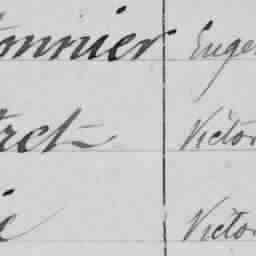 onnier Euge
ret Victor
ie Victor